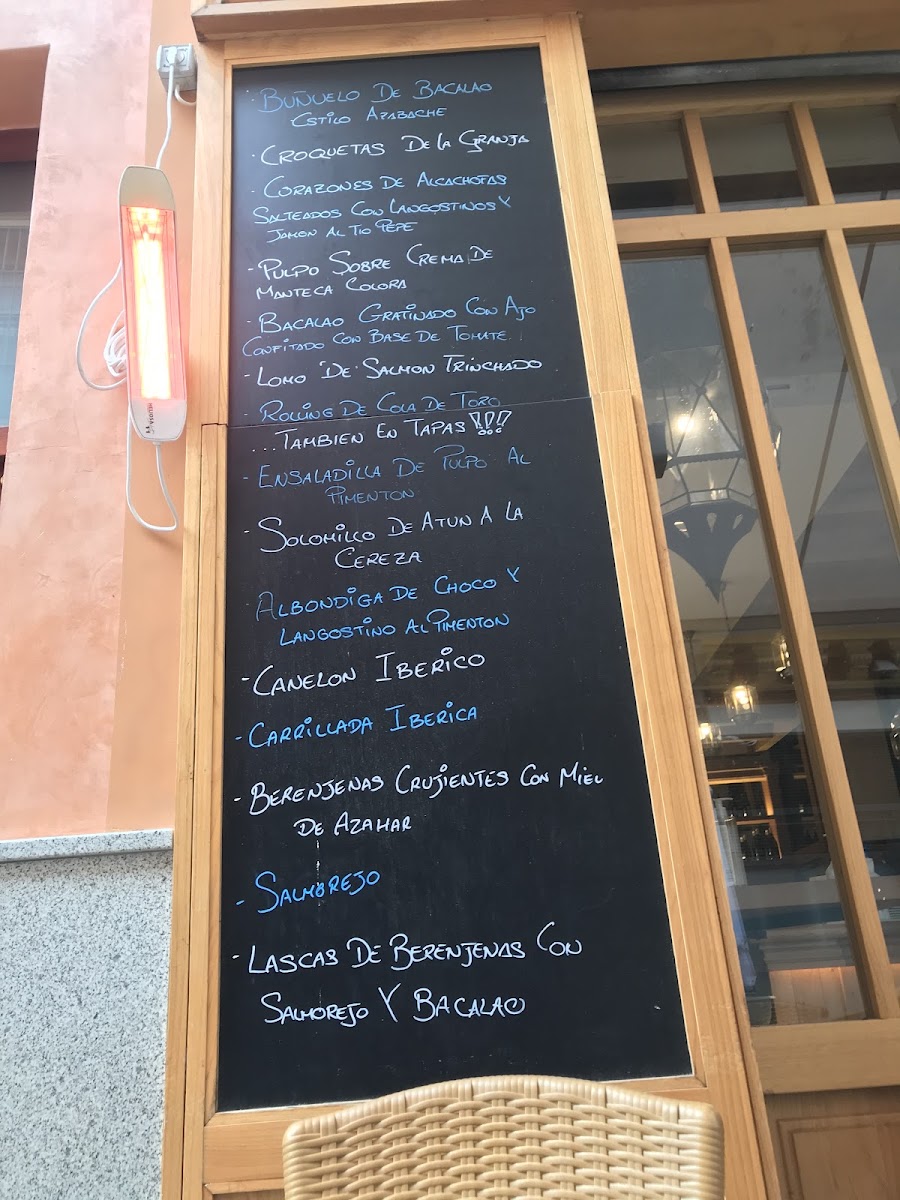 · BUÑUELO DE BACALAO
ESTILO AZABACHE
· CROQUETAS DE LA GRANJA
· CORAZONES DE ALCACHOFAS
SALTEADOS CON LANGOSTINOS Y
JAMON AL TIO PEPE
- PULPO SOBRE CREMA DE
MANTECA COLORA
- BACALAO GRATINADO CON AJO
CONFITADO CON BASE DE TOMATE
- LOMO DE SALMON TRINCHADO
- ROLLING DE COLA DE TORO
...TAMBIEN EN TAPAS!!!
- ENSALADILLA DE PULPO AL
PIMENTON
- SOLOMILLO DE ATUN A LA
CEREZA
- ALBONDIGA DE CHOCO Y
LANGOSTINO AL PIMENTON
- CANELON IBERICO
- CARRILLADA IBERICA
- BERENJENAS CRUJIENTES CON MIEL
DE AZAHAR
- SALMOREJO
- LASCAS DE BERENJENAS CON
SALMOREJO Y BACALAO